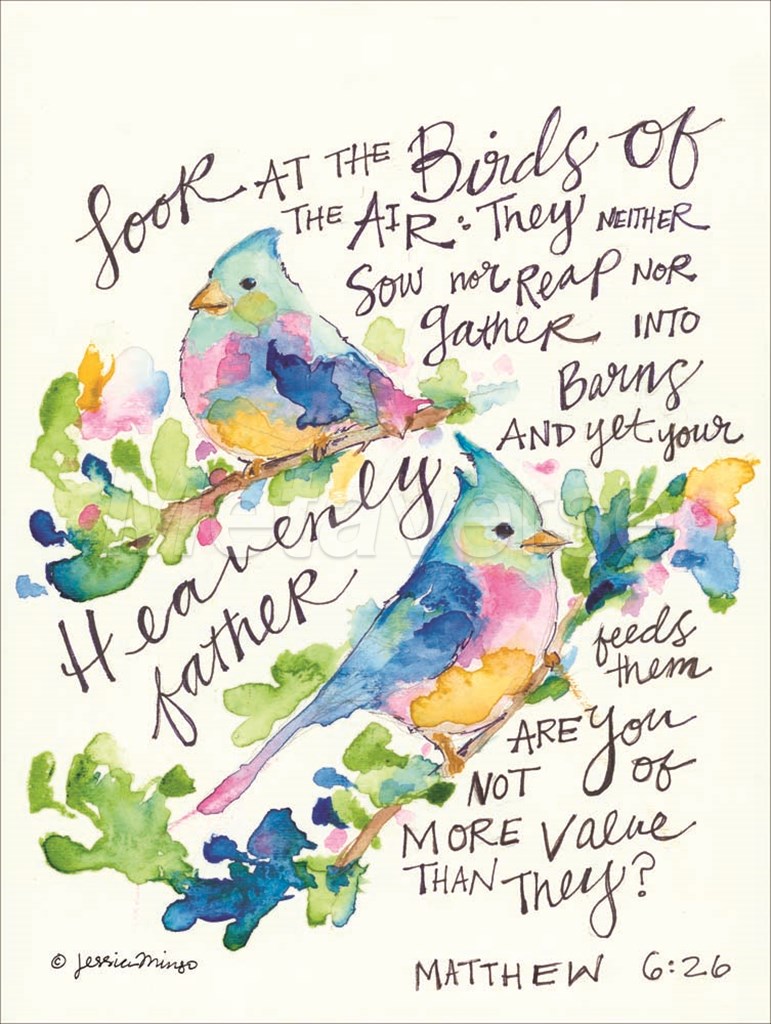 Look AT THE Birds of
THE AIR: They NEITHER
Sow nor REAP NOR
gather INTO
Barns
AND yet your
Heavenly
father
feeds
them
ARE you
NOT of
MORE Value
THAN They?
MATTHEW 6:26
© Jessica Mingo
MetaVerse